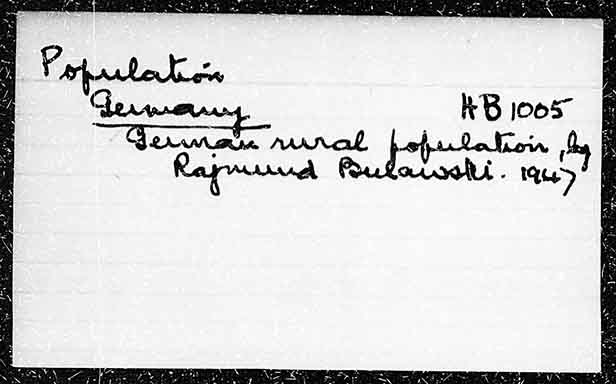 Population
Germany HB 1005
German rural population, by
Rajmund Bulawski. 1947